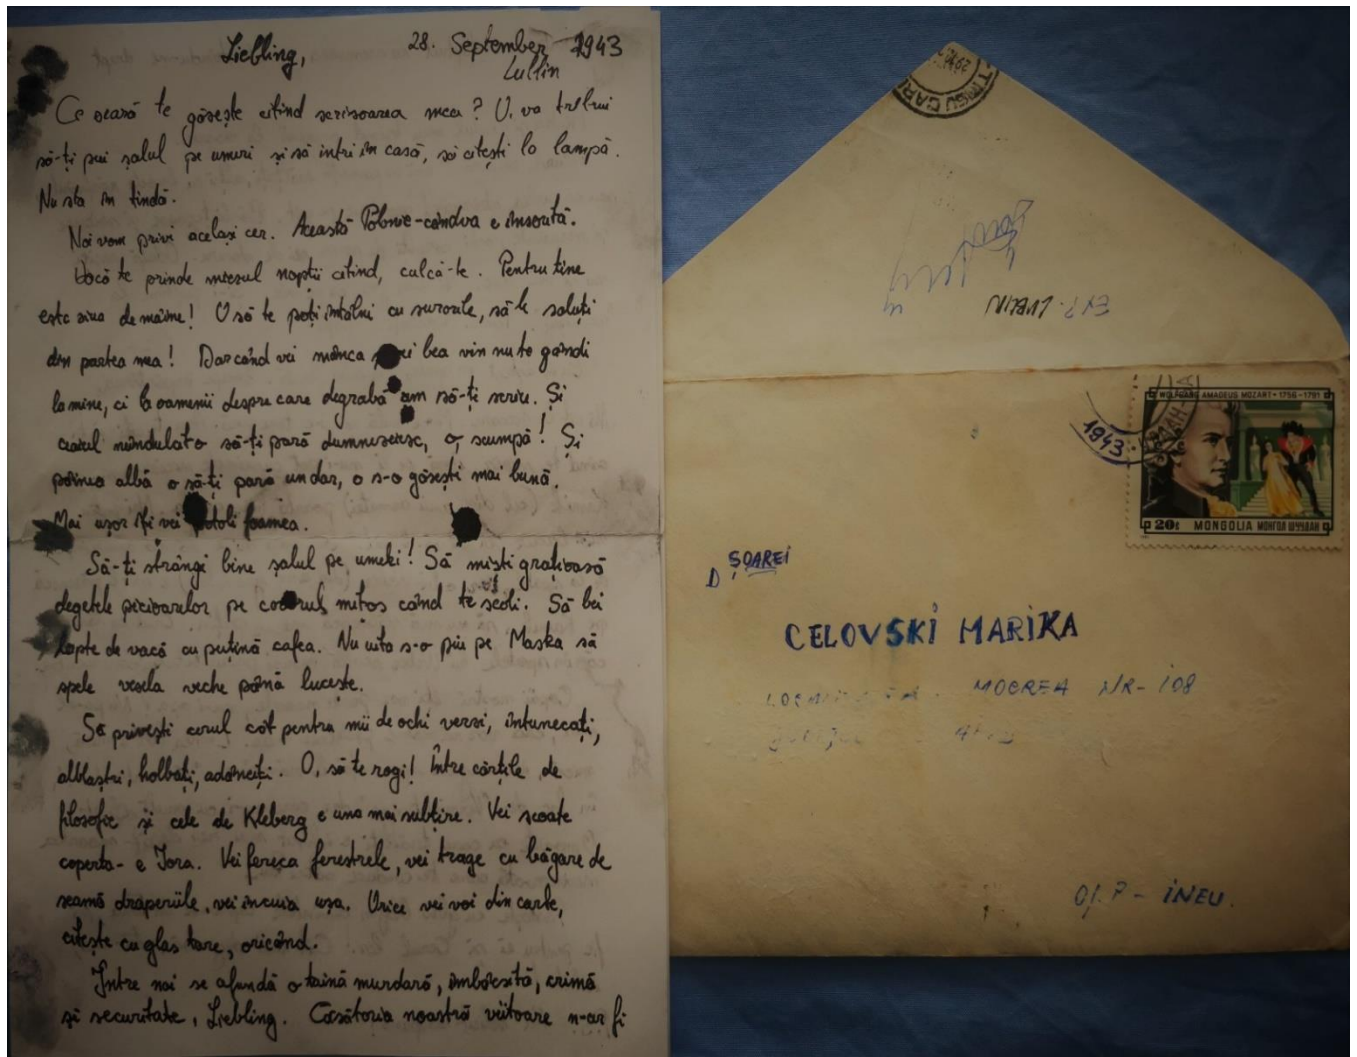 Liebling,
28. September 1943
Lublin
Ce seară te găsește citind scrisoarea mea? O, va trebui
să-ți pui șalul pe umeri și să intri în casă, să citești la lampă.
Nu sta în tindă.
Noi vom privi același cer. Această Polonie-cândva e însorită.
Dacă te prinde miezul nopții citind, culcă-te. Pentru tine
este ziua de mâine! O să te poți întâlni cu surorile, să le saluți
din partea mea! Dar când vei mânca bea vin nu te gândi
la mine, ci la oamenii despre care degrabă am să-ți scriu. Și
ceaiul o să-ți pară dumnezeiesc, o, scumpă! Și
pâinea albă o să-ți pară un dar, o s-o găsești mai bună.
Mai ușor îți vei potoli foamea.
Să-ți strângi bine șalul pe umeri! Să miști grațioasă
degetele picioarelor pe covorul mițos când te scoli. Să bei
lapte de vacă cu puțină cafea. Nu uita s-o pui pe Maska să
spele vesela veche până lucește.
Să privești cerul cât pentru mii de ochi verzi, întunecați,
albaștri, holbați, adânciți. O, să te rogi! Între cărțile de
filosofie și cele de Kleberg e una mai subțire. Vei scoate
coperta- e Tora. Vei fereca ferestrele, vei trage cu băgare de
seamă draperiile, vei încuia ușa. Orice vei voi din carte,
citește cu glas tare, oricând.
Între noi se afundă o taină murdară, îmbâcsită, crimă
și securitate, Liebling. Căsătoria noastră viitoare n-ar fi
TIRGU CARB
EXP. LUBLIN
WOLFGANG AMADEUS MOZART • 1756-1791
1943
20₮ MONGOLIA МОНГОЛ ШУУДАН
D ȘOAREI
CELOVSKI MARIKA
MOCREA NR-108
OF. P - INEU.